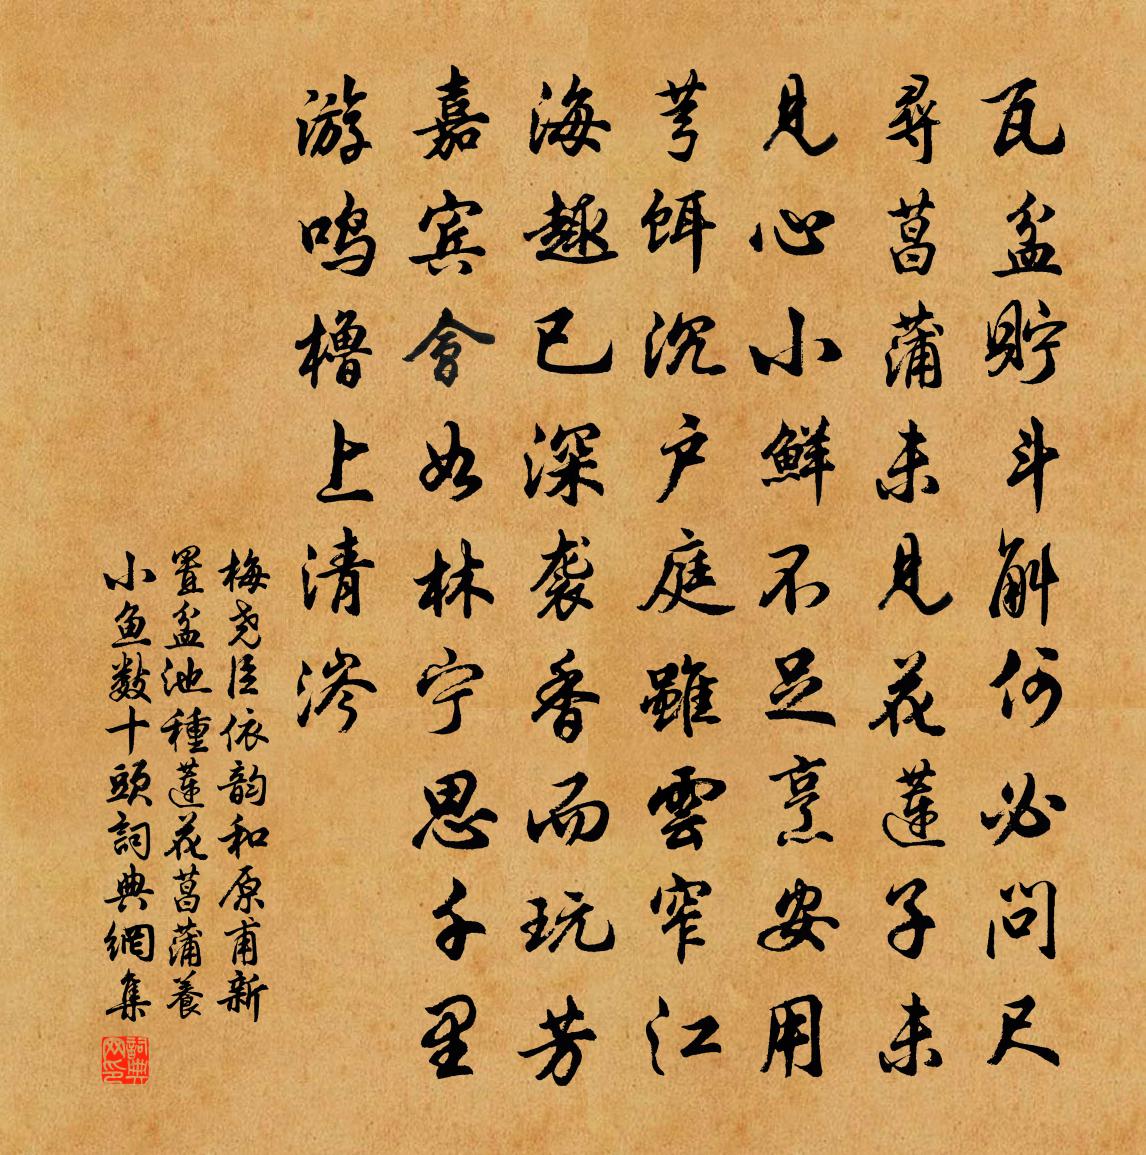 瓦盆貯斗斛何必問尺
尋菖蒲未見花蓮子未
見心小鮮不足烹安用
芎餌沉户庭雖雲窄江
海趣已深袭香而玩芳
嘉宾會如林宁思千里
游鸣橹上清涔
梅尧臣依韵和原甫新
置盆池種蓮花菖蒲養
小鱼數十頭詞典網集
詞典
网印